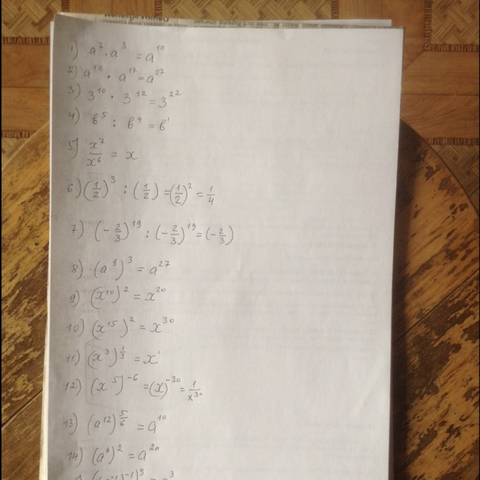 1) a⁷ · a³ = a¹⁰
2) a¹⁰ · a¹⁷ = a²⁷
3) 3¹⁰ · 3¹² = 3²²
4) b⁵ : b⁴ = b¹
5) x⁷/x⁶ = x
6) (1/2)³ : (1/2) = (1/2)² = 1/4
7) (-2/3)¹⁹ : (-2/3)¹⁹ = (-2/3)
8) (a⁹)³ = a²⁷
9) (x¹⁰)² = x²⁰
10) (x¹⁵)² = x³⁰
11) (x³)^(1/3) = x¹
12) (x⁵)⁻⁶ = (x)⁻³⁰ = 1/x³⁰
13) (a¹²)^(5/6) = a¹⁰
14) )² = a²⁰